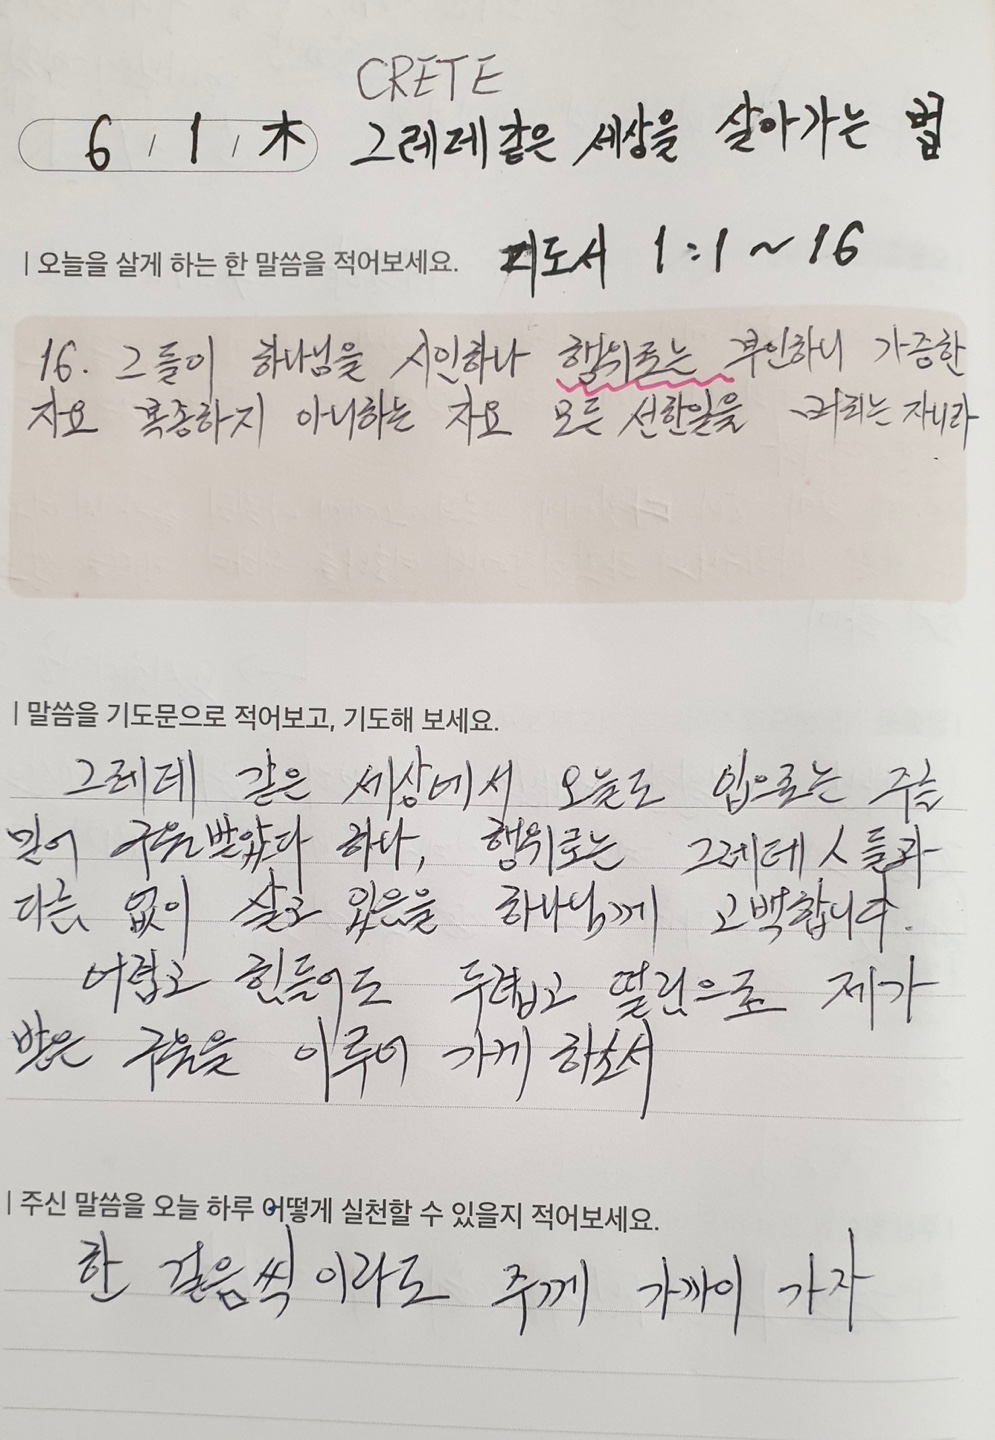 CRETE
6 / 1 / 木 그레데같은 세상을 살아가는 법
| 오늘을 살게 하는 한 말씀을 적어보세요. 디도서 1:1~16
16. 그들이 하나님을 시인하나 행위로는 부인하니 가증한
자요 복종하지 아니하는 자요 모든 선한일을 버리는 자니라
| 말씀을 기도문으로 적어보고, 기도해 보세요.
그레데 같은 세상에서 오늘도 입으로는 주를
믿어 구원받았다 하나, 행위로는 그레데人들과
다름 없이 살고 있음을 하나님께 고백합니다.
어렵고 힘들어도 두렵고 떨림으로 제가
받은 구원을 이루어 가게 하소서
| 주신 말씀을 오늘 하루 어떻게 실천할 수 있을지 적어보세요.
한 걸음씩 이라도 주께 가까이 가자